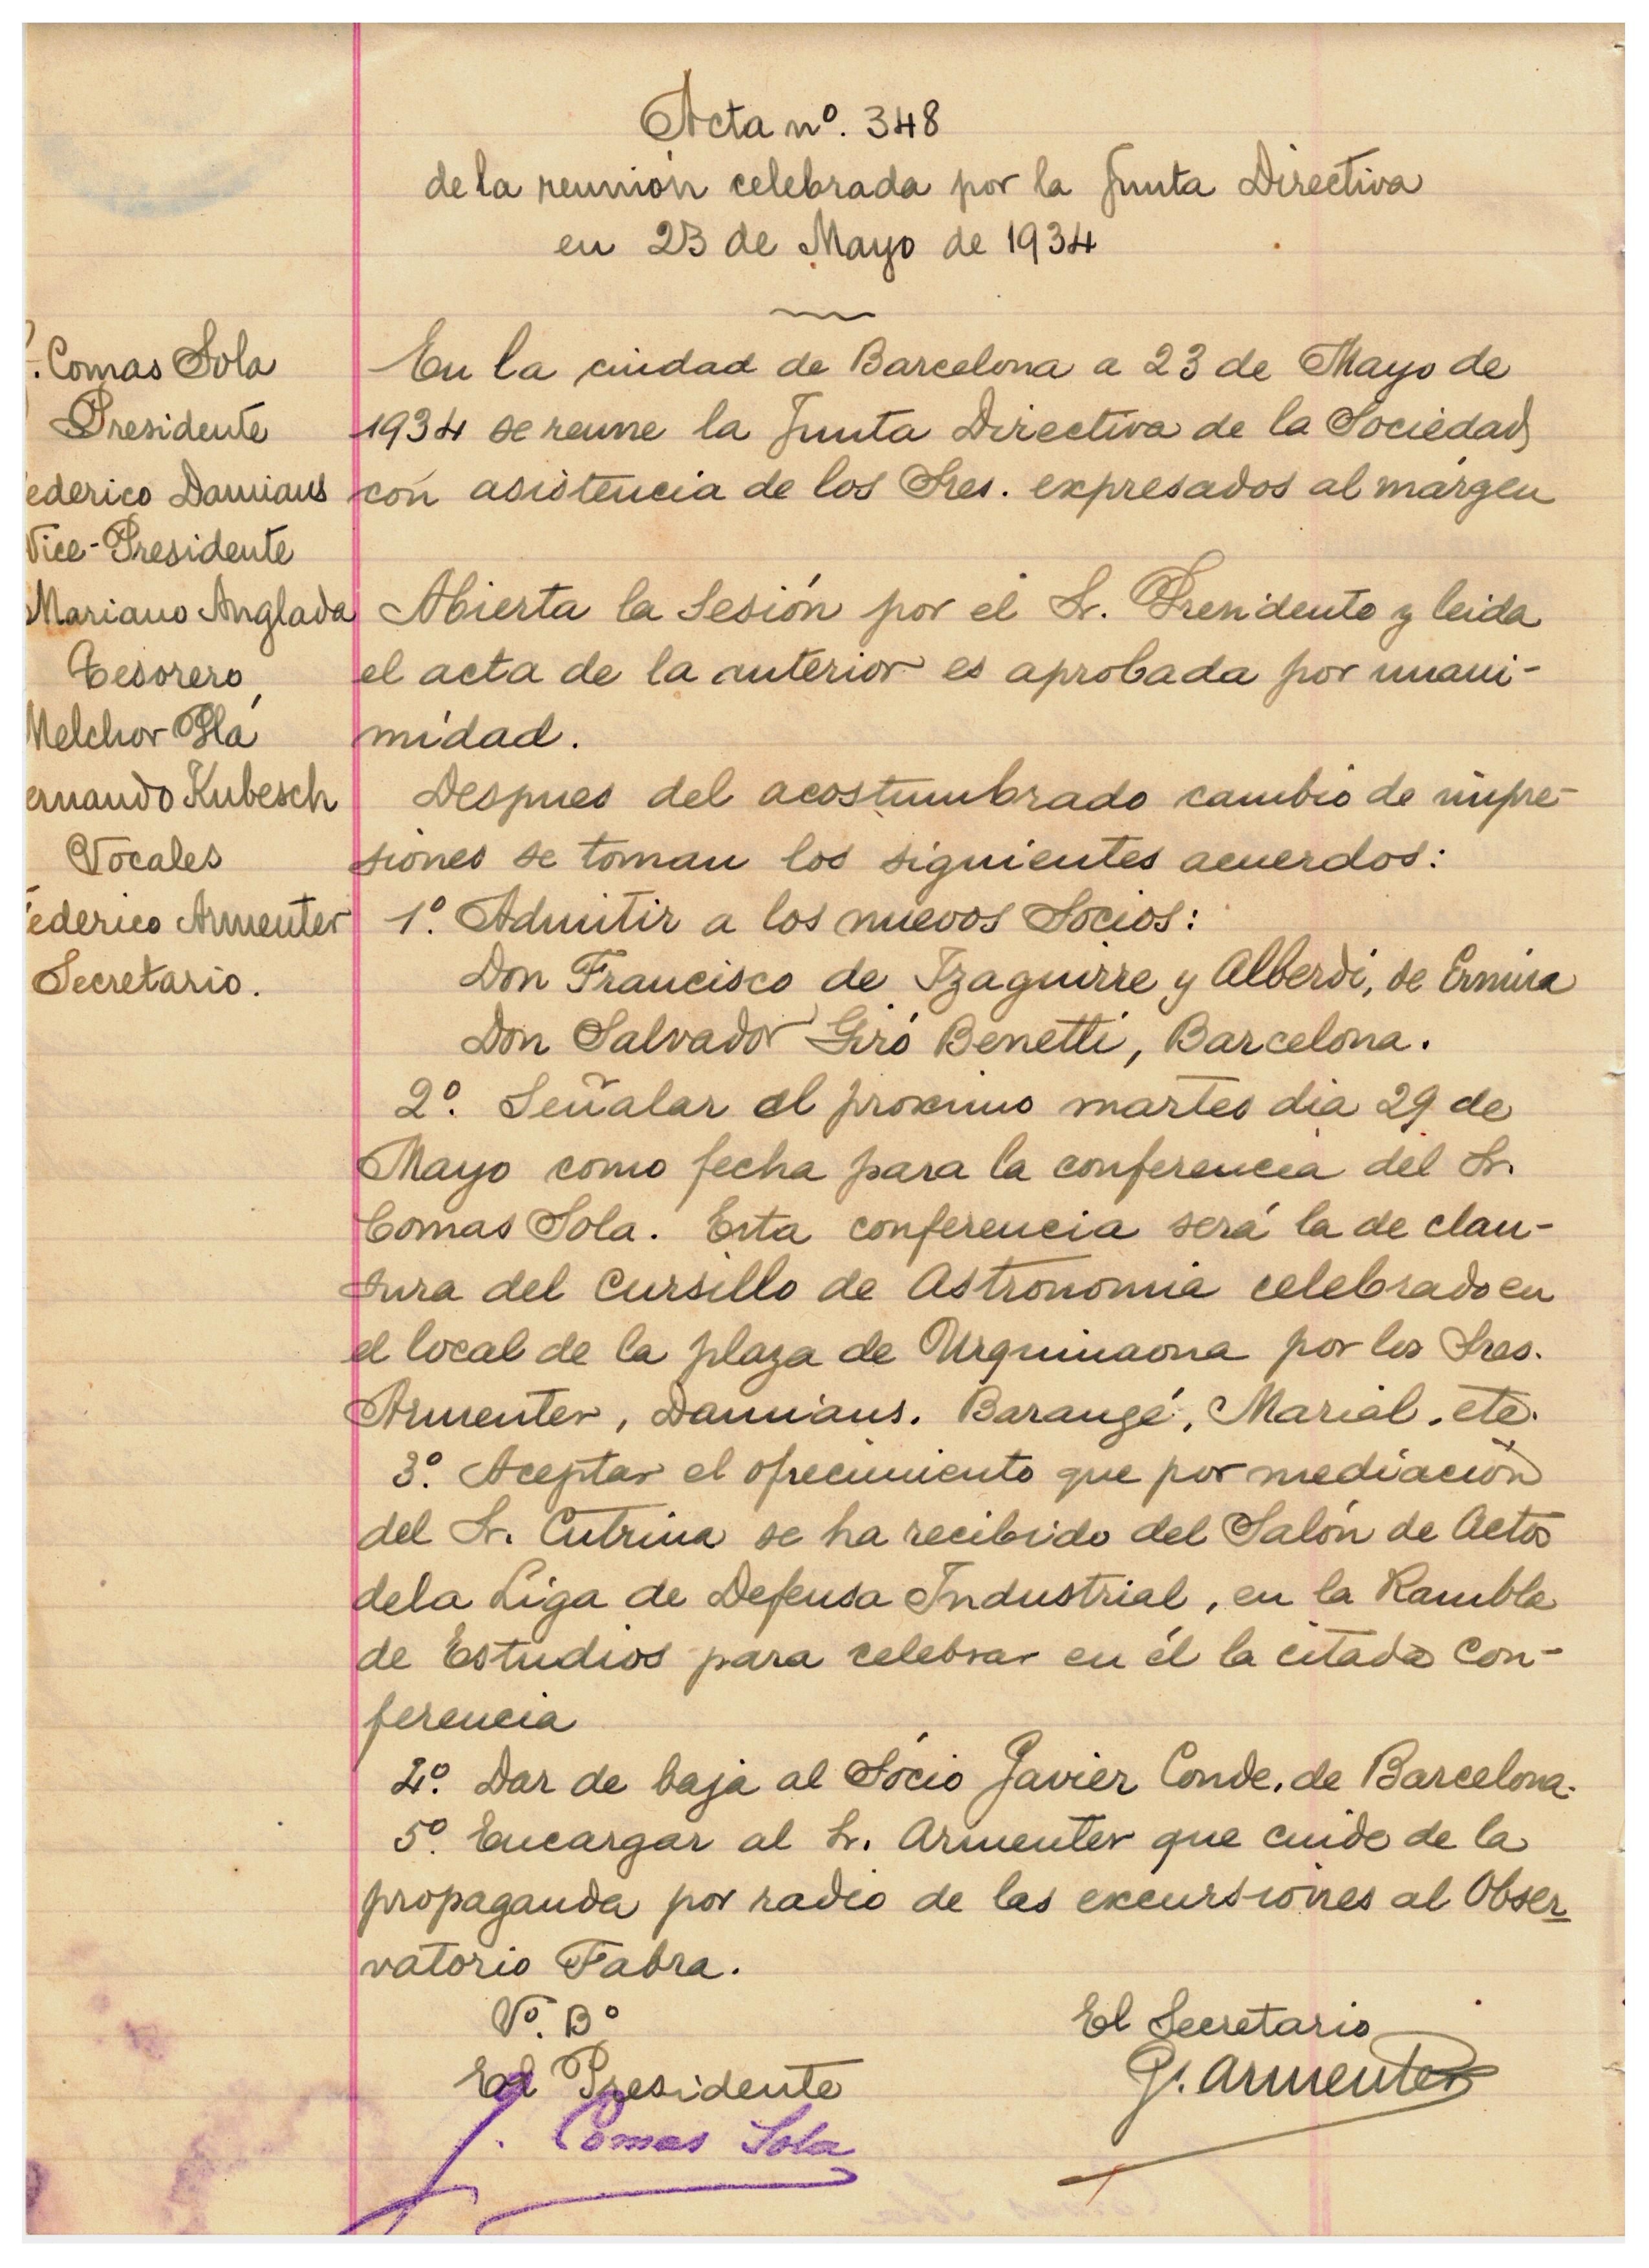 Acta nº. 348
de la reunión celebrada por la Junta Directiva
en 23 de Mayo de 1934
. Comas Sola
Presidente
ederico Damians
Vice-Presidente
Mariano Anglada
Tesorero
Melchor Plá
ernando Kubesch
Vocales
ederico Armenter
Secretario.
En la ciudad de Barcelona a 23 de Mayo de
1934 se reune la Junta Directiva de la Sociedad
con asistencia de los Sres. expresados al márgen
Abierta la Sesión por el Sr. Presidente y leida
el acta de la anterior es aprobada por unani-
midad.
Despues del acostumbrado cambio de impre-
siones se toman los siguientes acuerdos:
1º. Admitir a los nuevos Socios:
Don Francisco de Izaguirre y Alberdi, de Ermua
Don Salvador Giró Benetti, Barcelona.
2º. Señalar el proximo martes dia 29 de
Mayo como fecha para la conferencia del Sr.
Comas Sola. Esta conferencia será la de clau-
sura del Cursillo de Astronomia celebrado en
el local de la plaza de Urquinaona por los Sres.
Armenter, Damians. Barangé, Marial, etc.
3º. Aceptar el ofrecimiento que por mediación
del Sr. Cutrina se ha recibido del Salón de Actos
de la Liga de Defensa Industrial, en la Rambla
de Estudios para celebrar en él la citada con-
ferencia
4º. Dar de baja al Sócio Javier Conde, de Barcelona.
5º. Encargar al Sr. Armenter que cuide de la
propaganda por radio de las excursiones al Obser-
vatorio Fabra.
Vº. Bº
El Presidente
J. Comas Sola
El Secretario
F. Armenter